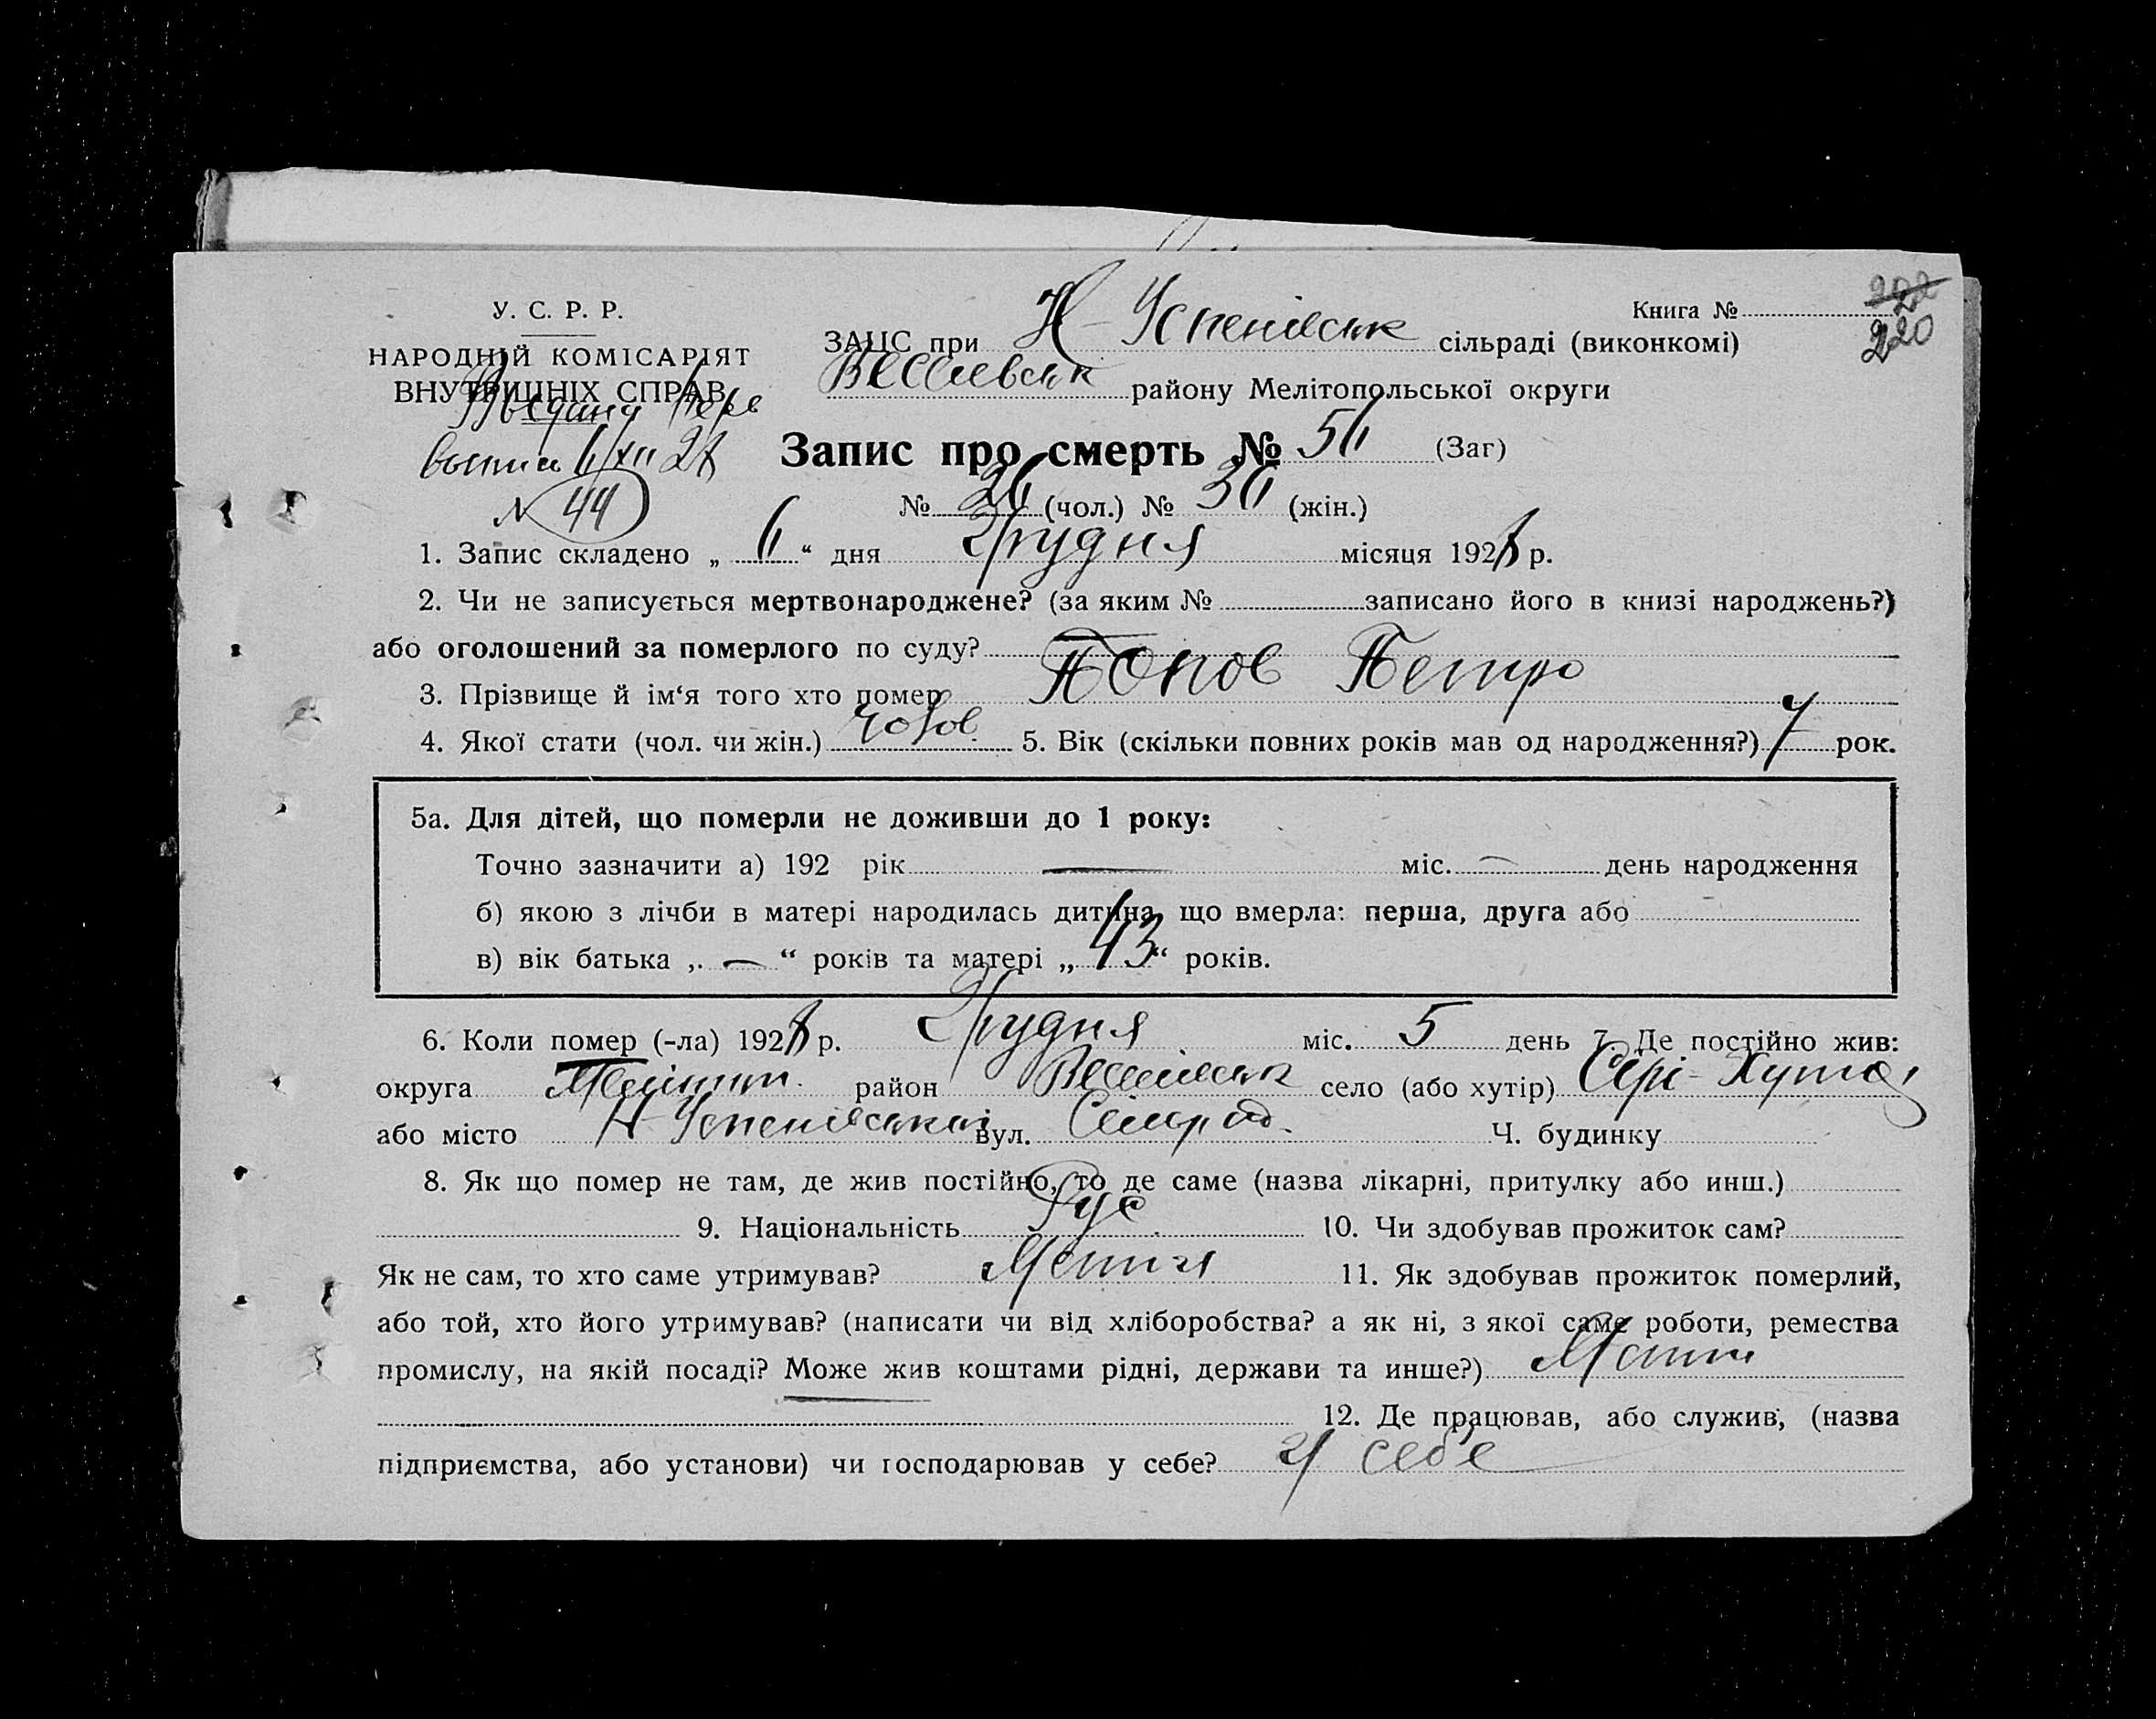 У. С. Р. Р.
НАРОДНІЙ КОМІСАРІЯТ
ВНУТРІШНІХ СПРАВ
Книга №
220
ЗАЦС при Н-Успенівськ сільраді (виконкомі)
Веселівськ району Мелітопольської округи
Видана
6/XII 28
N 44
Запис про смерть № 56 (Заг)
№ 26 (чол.) № 30 (жін.)
1. Запис складено „ 6 “ дня Грудня місяця 1928 р.
2. Чи не записується мертвонароджене? (за яким № записано його в книзі народжень?)
або оголошений за померлого по суду?
3. Прізвище й ім‘я того хто помер Попов Петро
4. Якої стати (чол. чи жін.) чолов. 5. Вік (скільки повних років мав од народження?) 7 рок.
5а. Для дітей, що померли не доживши до 1 року:
Точно зазначити а) 192 рік — міс. — день народження
б) якою з лічби в матері народилась дитина, що вмерла: перша, друга або
в) вік батька „ — “ років та матері „ 43 “ років.
6. Коли помер (-ла) 1928 р. Грудня міс. 5 день 7. Де постійно жив:
округа Мелітоп. район Веселівськ село (або хутір) Сірі-Хутор
або місто Н-Успенівської вул. Сільрад. Ч. будинку
8. Як що помер не там, де жив постійно, то де саме (назва лікарні, притулку або инш.)
9. Національність Рус 10. Чи здобував прожиток сам?
Як не сам, то хто саме утримував? Мати 11. Як здобував прожиток померлий,
або той, хто його утримував? (написати чи від хліборобства? а як ні, з якої саме роботи, ремества
промислу, на якій посаді? Може жив коштами рідні, держави та инше?) Мати
12. Де працював, або служив, (назва
підприємства, або установи) чи господарював у себе? у себе